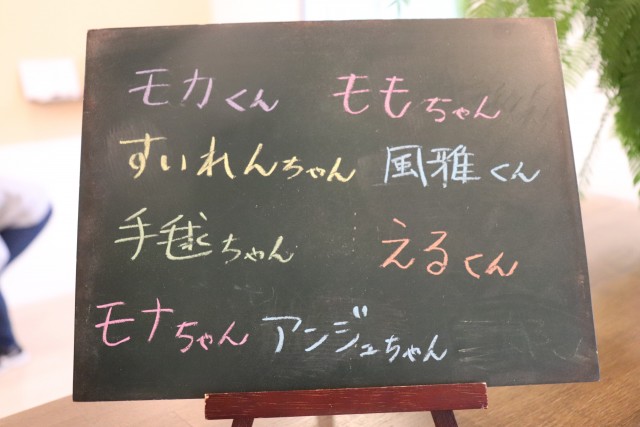 モカくん ももちゃん
すいれんちゃん 風雅くん
手毬ちゃん えるくん
モナちゃん アンジュちゃん